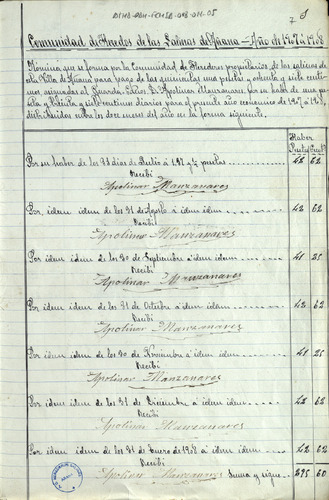 7
Comunidad de Herederos de las Salinas de Añana = Año de 1907 a 1908
Nómina que se forma por la Comunidad de Herederos propietarios de las salinas de
esta Villa de Añana para pago de
asignados al Guarda D. Apolinar Manzanares por su haber de una pe-
seta y siete centimos diarios para el presente año economico de 1907 a 190
distribuidos entre los doce meses del año en la forma siguiente.
Haber
Pesetas Cent.
Por su haber de los 31 dias de Julio á 1'37 ½ pesetas 42 62
Recibí
Apolinar Manzanares
Por idem idem de los 31 de Agosto á idem idem 42 62
Recibí
Apolinar Manzanares
Por idem idem de los 30 de Septiembre á idem idem 41 25
Recibí
Apolinar Manzanares
Por idem idem de los 31 de Octubre á idem idem 42 62
Recibí
Apolinar Manzanares
Por idem idem de los 30 de Noviembre á idem idem 41 25
Recibí
Apolinar Manzanares
Por idem idem de los 31 de Diciembre á idem idem 42 62
Recibí
Apolinar Manzanares
Por idem idem de los 31 de Enero de 1908 á idem idem 42 62
Recibí
Apolinar Manzanares Suma y sigue 295 60